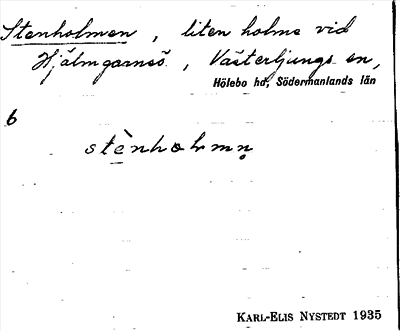 Stenholmen, liten holme vid
Hjälmgarnsö, Västerljungs sn,
Hölebo hd, Södermanlands län
6
stènholmn̥
KARL-ELIS NYSTEDT 1935